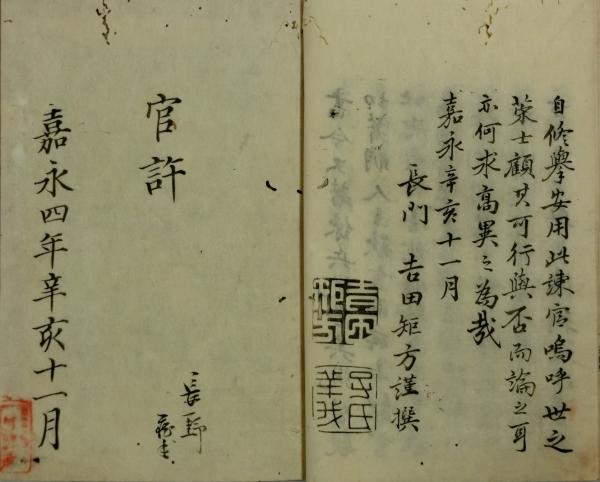 自修擧安用此諫官嗚呼世之
策士顧其可行與否而論之耳
亦何求高異之為哉
嘉永辛亥十一月
長門 吉田矩方謹撰
吉田
矩方
子氏
義
官許
嘉永四年辛亥十一月
長野